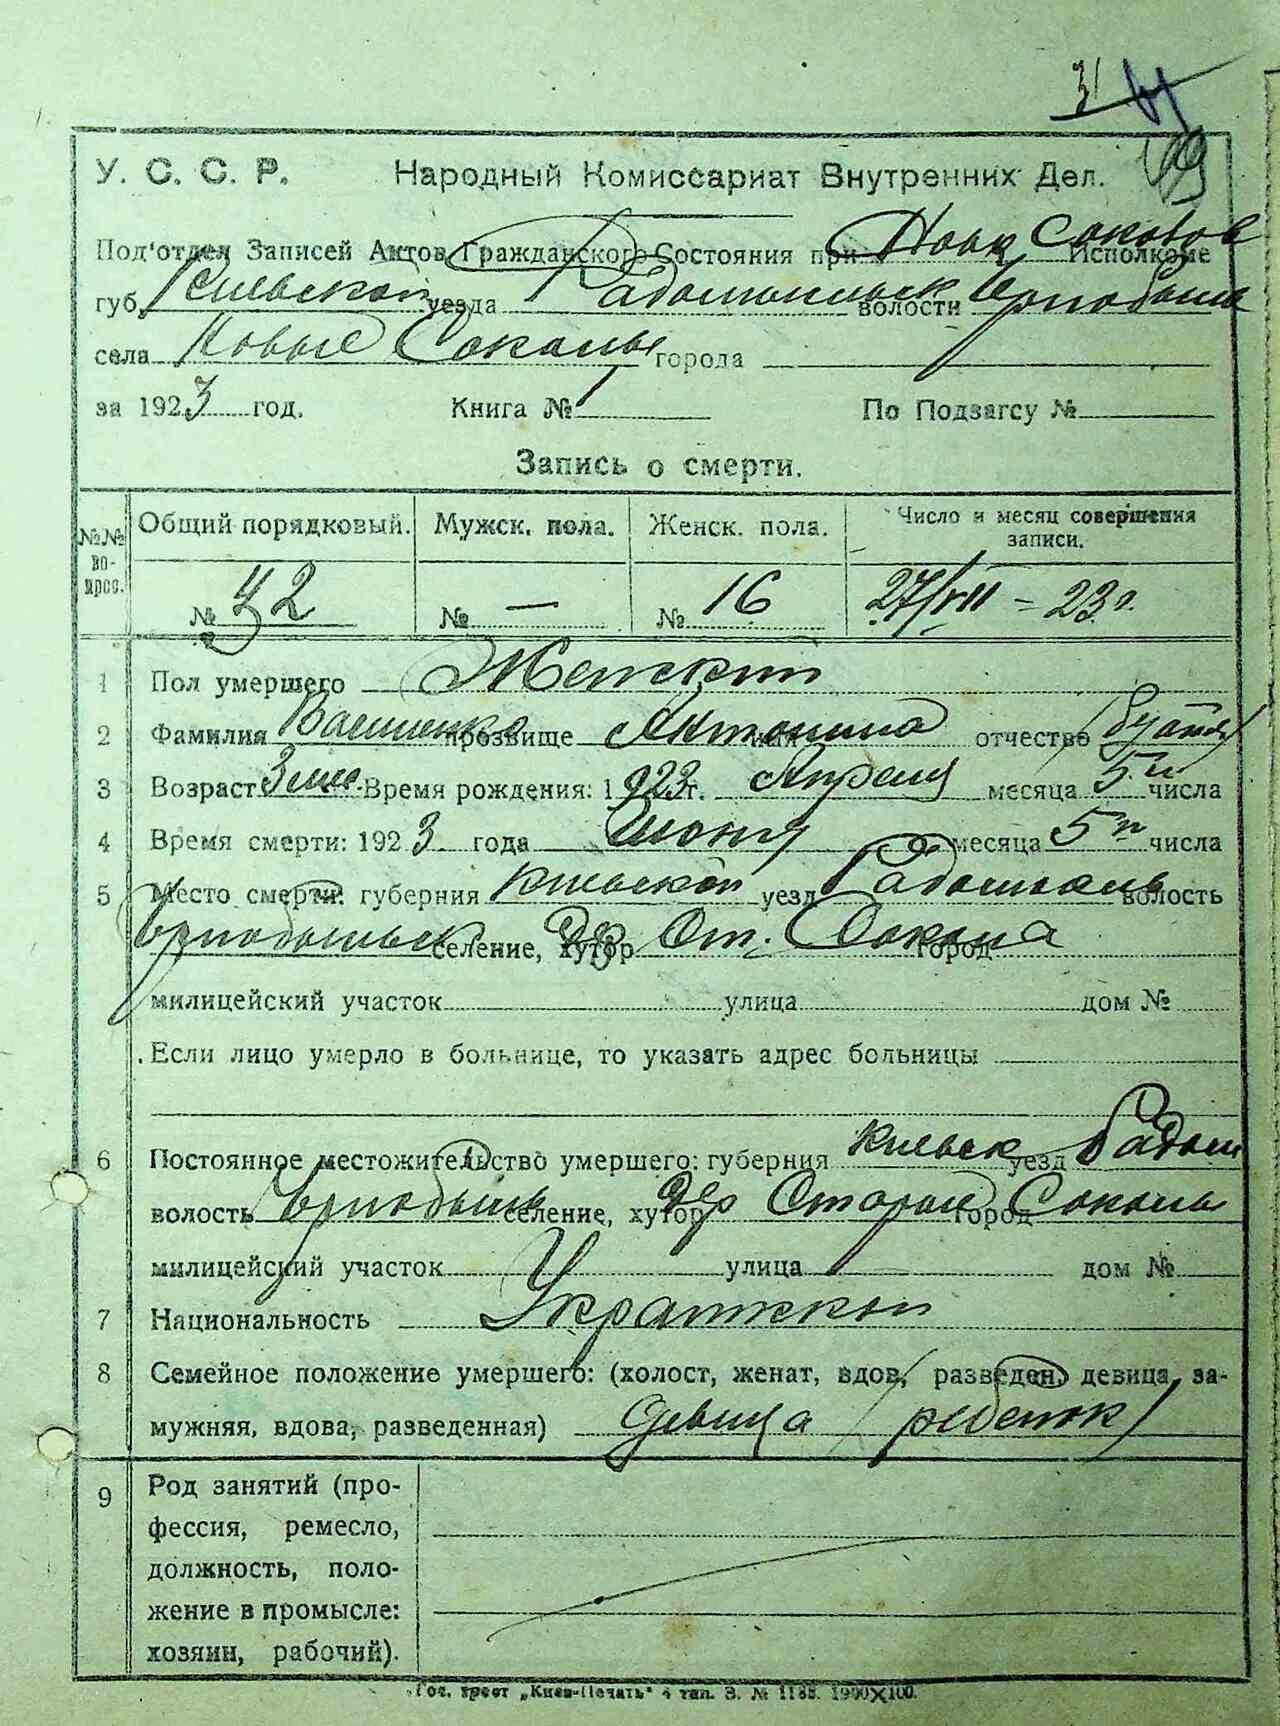 31
99
У. С. С. Р. Народный Комиссариат Внутренних Дел.
Под'отдел Записей Актов Гражданского Состояния при Исполкоме
губ. Киевской уезда Радомысльск волости
села Новые Соколы города
за 1923 год. Книга № 1 По Подзагсу №
Запись о смерти.
№№ вопрос. Общий порядковый. Мужск. пола. Женск. пола. Число и месяц совершения записи.
№ 42 № — № 16 27/VII – 23 г.
1 Пол умершего Женский
2 Фамилия прозвище Антонина имя отчество
3 Возраст 3 мес. Время рождения: 1923 г. Апреля месяца 5 числа
4 Время смерти: 1923 года Июня месяца 5 числа
5 Место смерти: губерния Киевской уезд волость
селение, хутор Дер Ст. город
милицейский участок улица дом №
Если лицо умерло в больнице, то указать адрес больницы
6 Постоянное местожительство умершего: губерния Киевск уезд Радом
волость селение, хутор дер город
милицейский участок улица дом №
7 Национальность
8 Семейное положение умершего: (холост, женат, вдов, разведен, девица, за-
мужняя, вдова, разведенная) девица (ребенок)
9 Род занятий (про-
фессия, ремесло,
должность, поло-
жение в промысле:
хозяин, рабочий).
Гос. трест „Киев-Печать" 4 тип. З. № 1188. 1900×100.